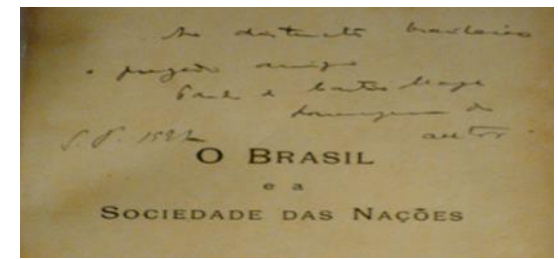 Ao distincto brasileiro
e prezado amigo
Paulo de
homenagem do
autor.
S. P.
O BRASIL
e a
SOCIEDADE DAS NAÇÕES